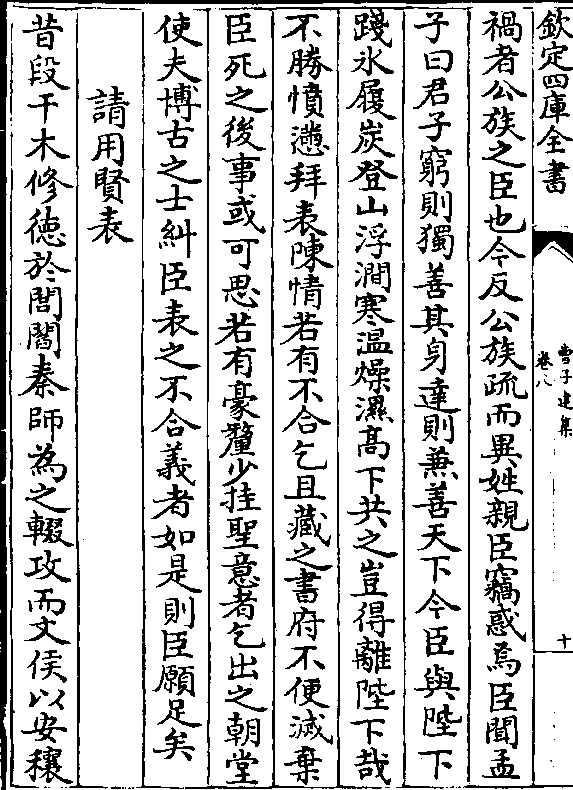 欽定四庫全書
曹子建集
卷八
十
禍者公族之臣也今反公族疏而異姓親臣竊惑焉臣聞孟
子曰君子窮則獨善其身達則兼善天下今臣與陛下
踐氷履炭登山浮澗寒温燥濕髙下共之豈得離陛下哉
不勝憤懣拜表陳情若有不合乞且藏之書府不便滅棄
臣死之後事或可思若有豪釐少挂聖意者乞出之朝堂
使夫博古之士糾臣表之不合義者如是則臣願足矣
請用賢表
昔段干木修徳於閭閻秦師為之輟攻而文侯以安穰